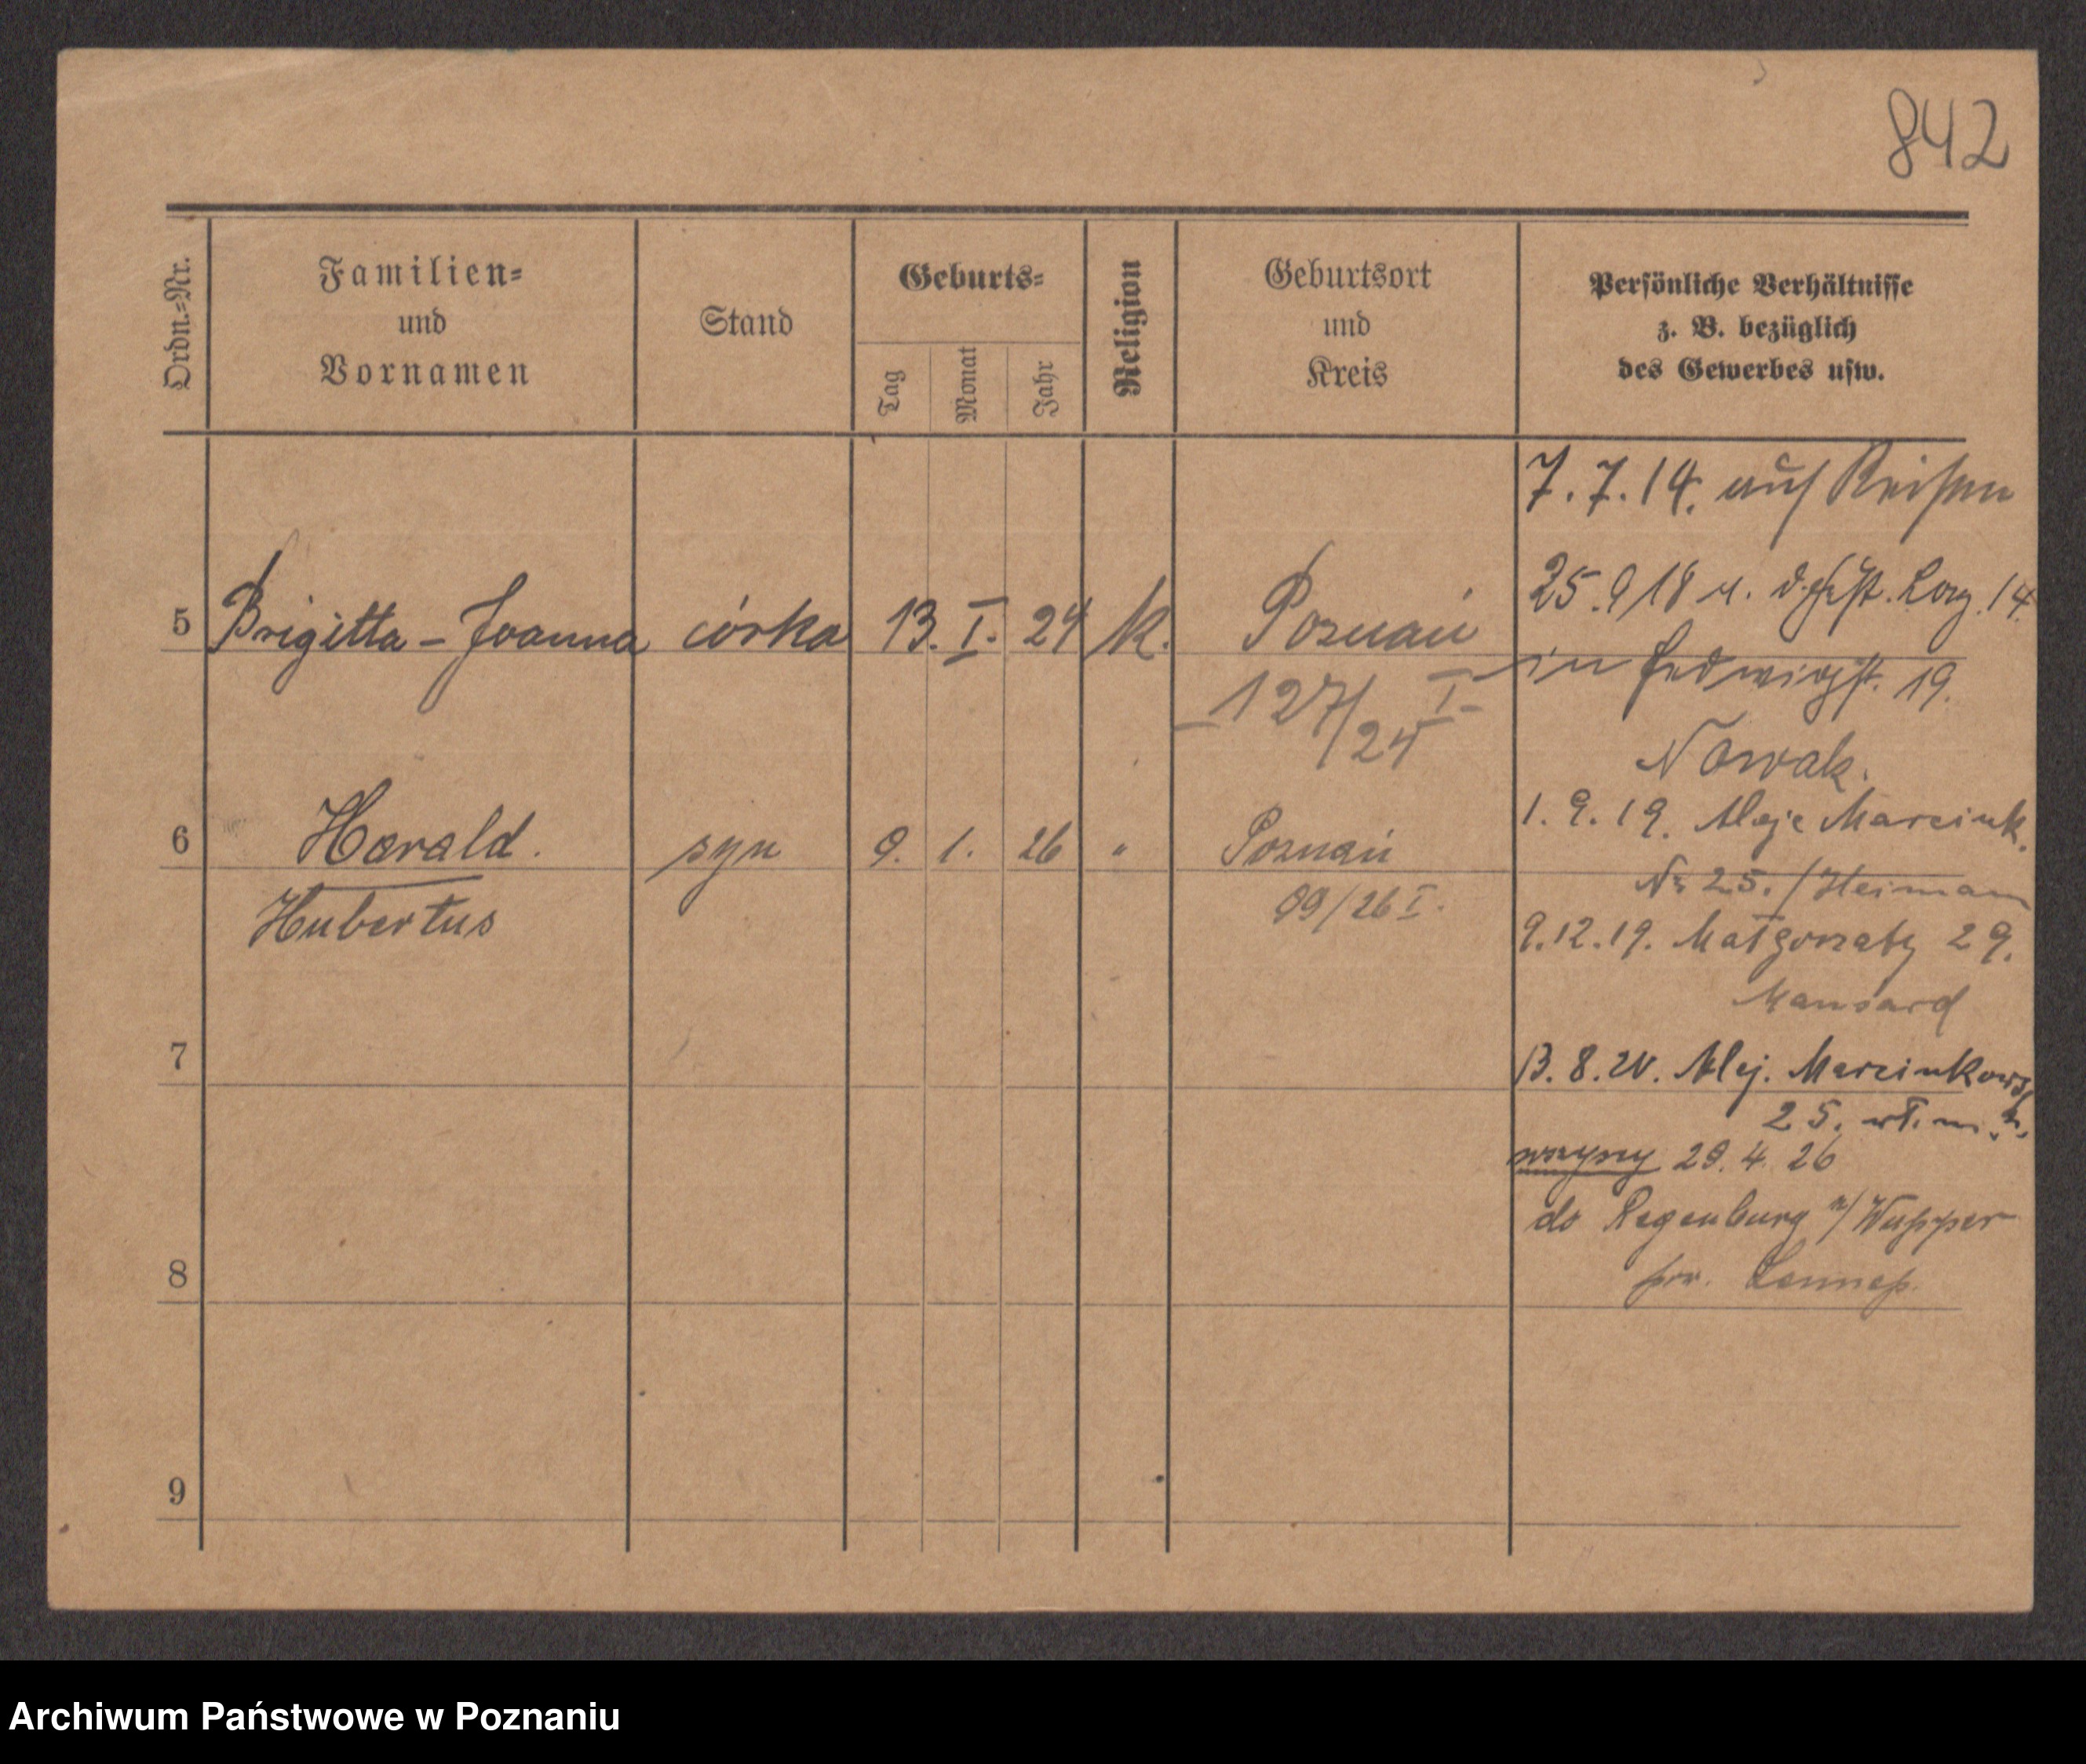 842
Ordn.=Nr.
Familien=
und
Vornamen
Stand
Geburts=
Tag
Monat
Jahr
Religion
Geburtsort
und
Kreis
Persönliche Verhältnisse
z. B. bezüglich
des Gewerbes usw.
7.7.14. auf Reisen
5 Brigitta - Joanna córka 13. I. 24 k. Poznań
127/24 I
25.9 18 v.
in Hedwigst. 19.
Nowak.
6 Harald. syn 9. 1. 26 " Poznań
Hubertus
99/26 I.
1.9.19. Aleje Marcink.
Nr 25. / Heiman
9.12.19. Małgorzaty 29.
Mansard
7
Alej. Marcinkowsk.
25. wł. m.
wszyscy 29. 4. 26
do Regenburg n/Wupper
pow. Lennep.
8
9
Archiwum Państwowe w Poznaniu